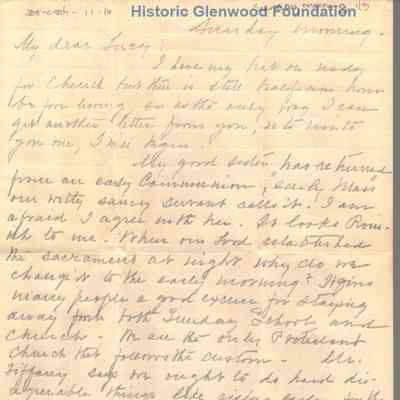 Historic Glenwood Foundation
Sunday morning.
My dear Lucy:
I have my hat on ready
for Church but there is still half an hour
before leaving, so as the only way I can
get another letter from you, is to write
you one, I will begin.
My good sister has returned
from an early Communion, "early Mass"
our witty saucy servant calls it. I am
afraid I agree with her. It looks Rom-
ish to me. When our Lord established
the sacrament at night why do we
change it to the early morning? It gives
many people a good excuse for staying
away from both Sunday School and
Church. We are the only Protestant
Church that follows the custom. Mr.
Tiffany says we ought to do hard dis-
agreeable things like rising early